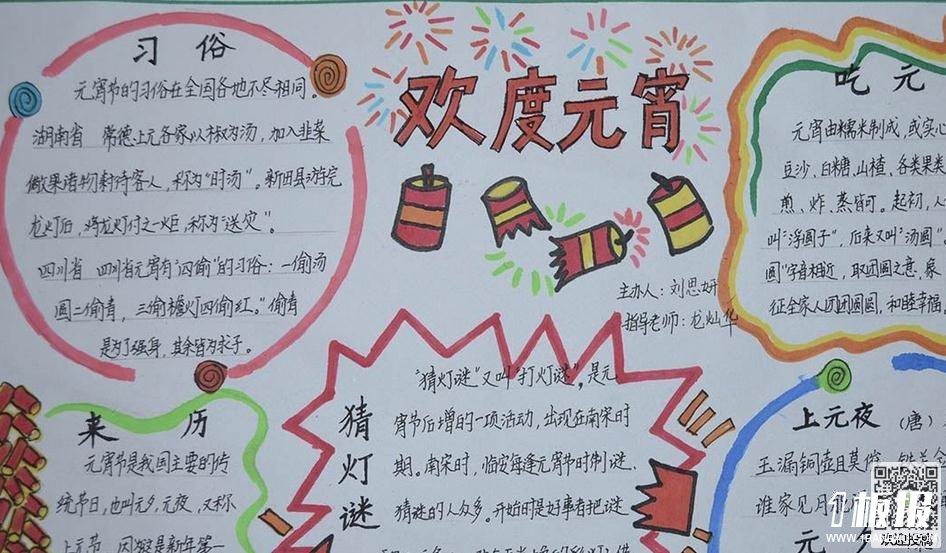 欢度元宵
主办人：刘思妍
指导老师：龙灿华
习 俗
元宵节的习俗在全国各地不尽相同。
湖南省 常德上元各家以椒为汤，加入韭菜
做果诸物剩待客人，称为“时汤”。新田县游完
龙灯后，将龙灯付之一炬，称为“送灾”。
四川省 四川省元宵有“四偷”的习俗：一偷汤
圆二偷青，三偷檐灯四偷红。”偷青
是为了强身，其余皆为求子。
吃 元
元宵由糯米制成，或实心
豆沙、白糖、山楂、各类果类
煎、炸、蒸皆可。起初，人
叫“浮圆子”，后来又叫“汤圆”，
圆”字音相近，取团圆之意，象
征全家人团团圆圆，和睦幸福，
来 历
元宵节是我国主要的传
统节日，也叫元夕、元夜，又称
上元节，因这是新年第一
猜灯谜
“猜灯谜”又叫“打灯谜”。是元
宵节后增的一项活动，出现在南宋时
期。南宋时，临安每逢元宵节时制谜、
猜谜的人众多。开始时是好事者把谜
上元夜
（唐）
玉漏铜壶且莫催，铁关金
谁家见月能
元
1板报
1BANBAO.COM